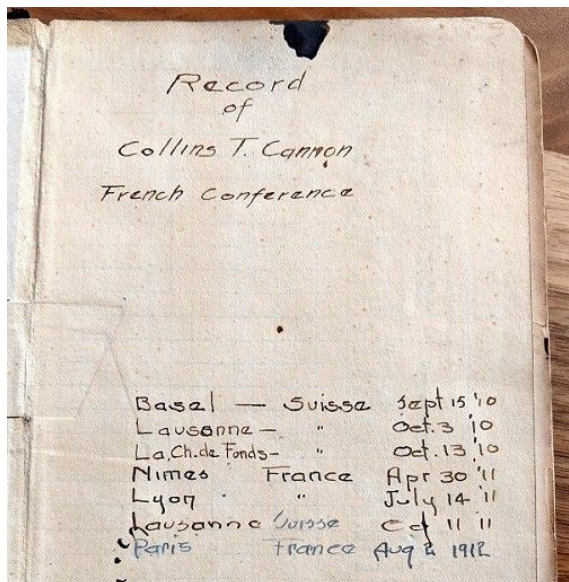 Record
of
Collins T. Cannon
French Conference
Basel — Suisse Sept 15 '10
Lausanne — " Oct. 3 '10
La, Ch. de Fonds - " Oct. 13 '10
Nimes France Apr 30 '11
Lyon " July 14 '11
Lausanne Suisse Oct 11 11
Paris France Aug 2 1912